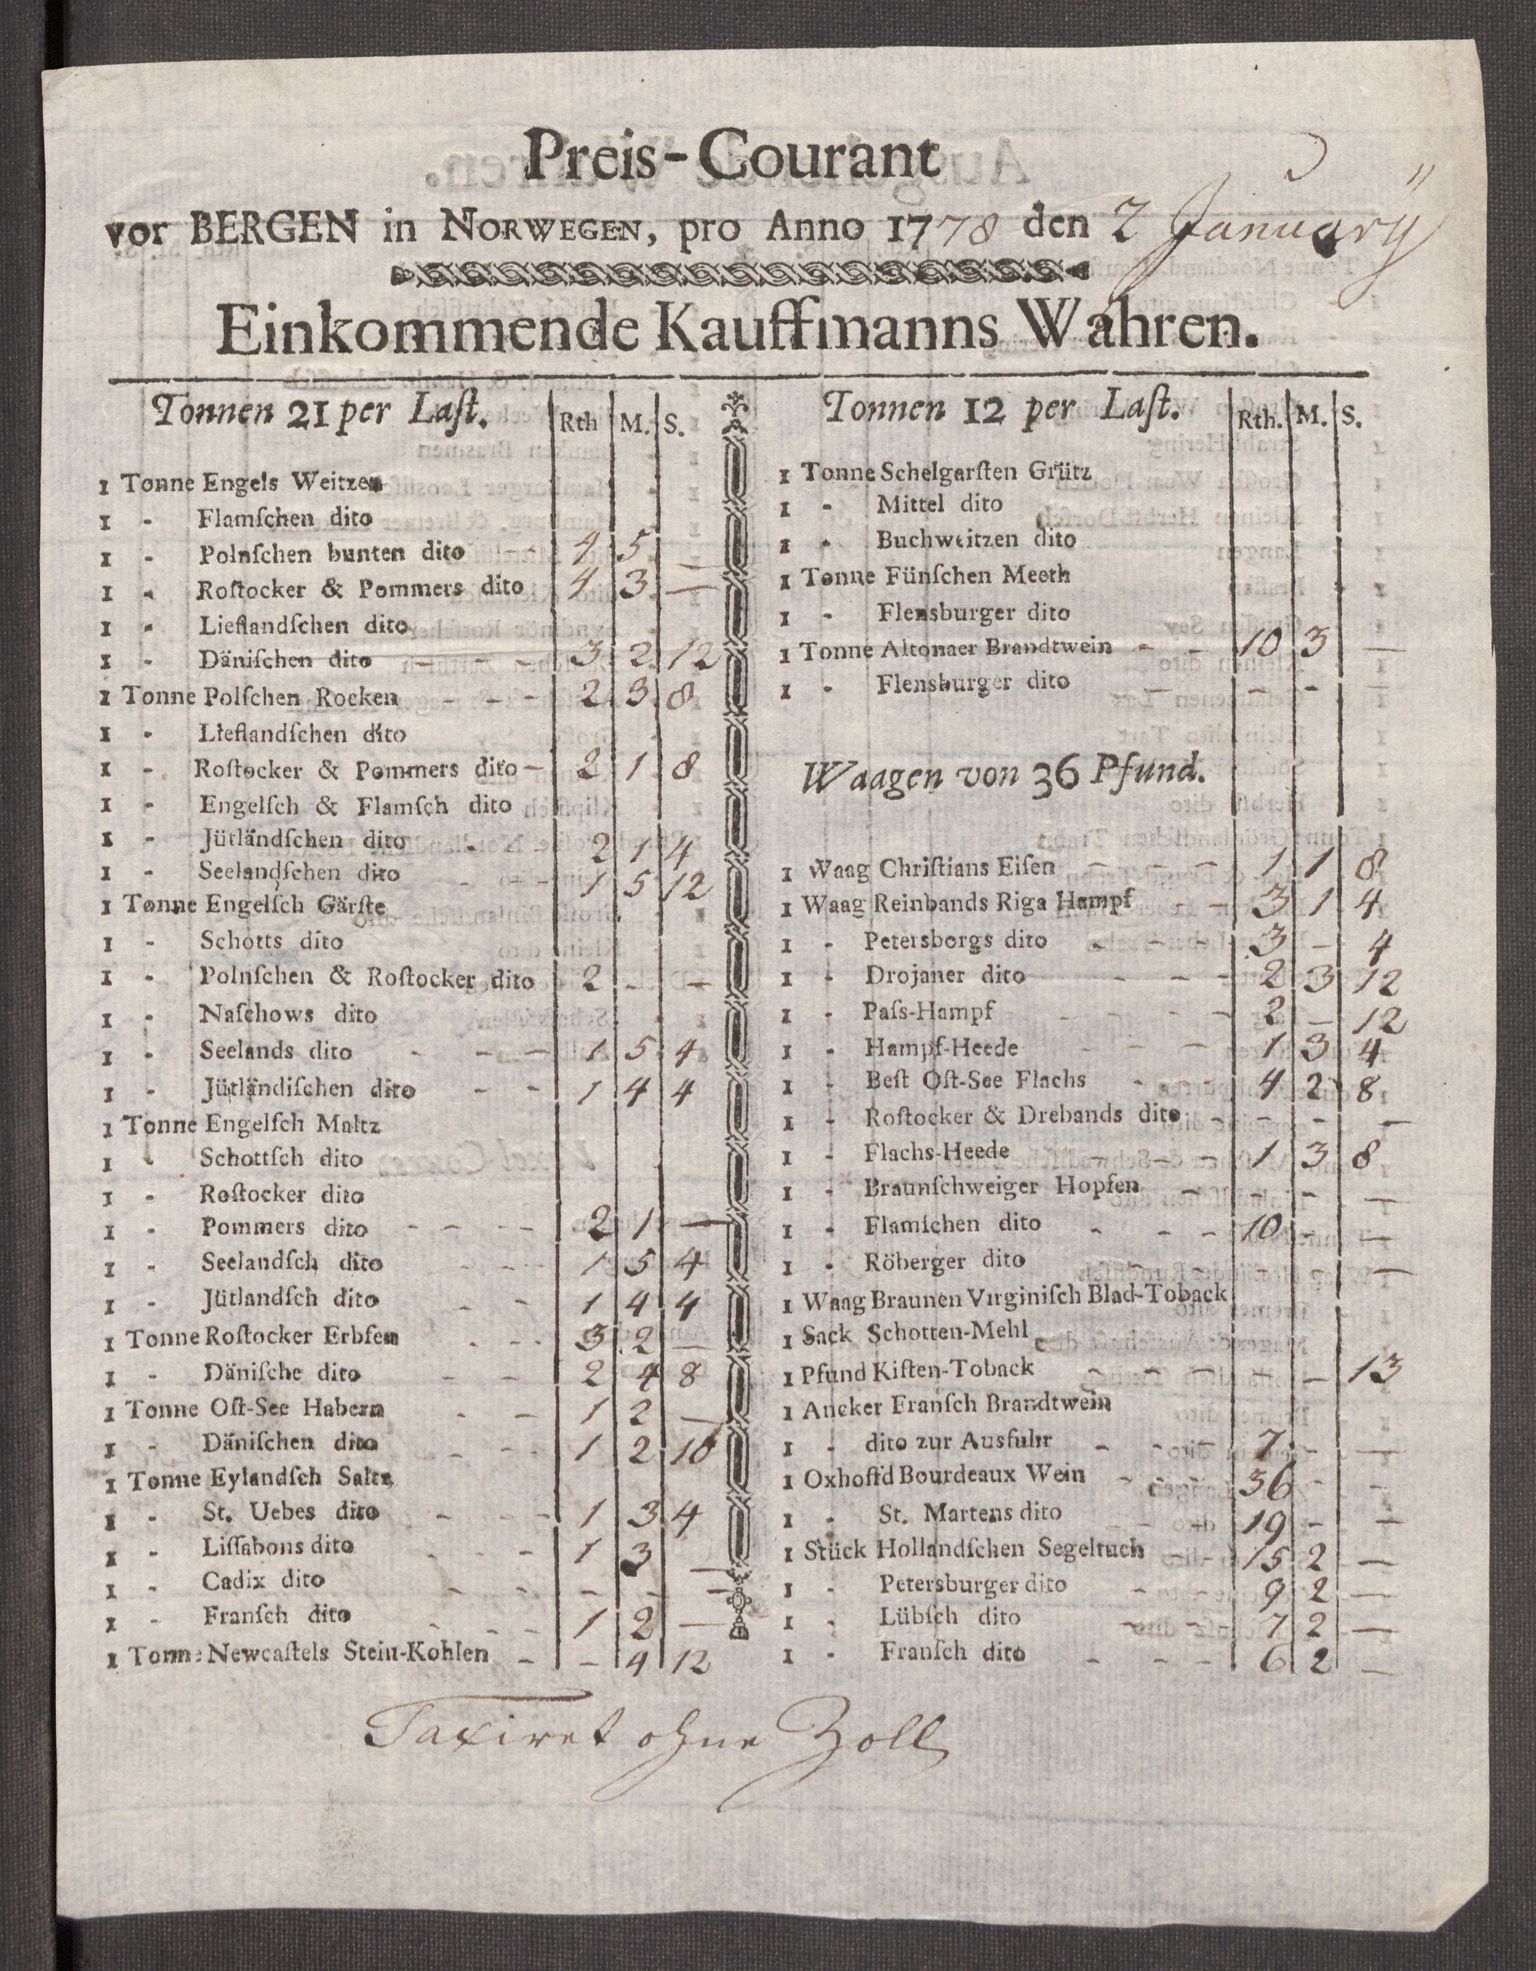 Preis-Courant
vor BERGEN in NORWEGEN, pro Anno 1778 den 2 January
Einkommende Kauffmanns Wahren.
Tonnen 21 per Laſt. Rth M. S.
1 Tonne Engels Weitzen
1 - Flamſchen dito
1 - Polnſchen bunten dito - - 4 5 —
1 - Roſtocker & Pommers dito 4 3 —
1 - Lieflandſchen dito
1 - Däniſchen dito - - - 3 2 12
1 Tonne Polſchen Rocken - - - 2 3 8
1 - Lieflandſchen dito
1 - Roſtocker & Pommers dito - 2 1 8
1 - Engelſch & Flamſch dito
1 - Jütländſchen dito - 2 1 4
1 - Seelandſchen dito - - 1 5 12
1 Tonne Engelſch Gärſte
1 - Schotts dito
1 - Polnſchen & Roſtocker dito 2 - -
1 - Naſchows dito
1 - Seelands dito - - - 1 5 4
1 - Jütländiſchen dito - - 1 4 4
1 Tonne Engelſch Maltz
1 - Schottſch dito
1 - Roſtocker dito
1 - Pommers dito - - - - 2 1 —
1 - Seelandſch dito - - - 1 5 4
1 - Jütlandſch dito - - 1 4 4
1 Tonne Roſtocker Erbſen - - 3 2 —
1 - Däniſche dito - - 2 4 8
1 Tonne Oſt-See Habern - - 1 2 —
1 - Däniſchen dito - - - 1 2 10
1 Tonne Eylandſch Saltz
1 - St. Uebes dito - - - 1 3 4
1 - Liſſabons dito - - - 1 3 —
1 - Cadix dito - - - - - —
1 - Franſch dito - - - 1 2 —
1 Tonne Newcaſtels Stein-Kohlen - - 4 12
Tonnen 12 per Laſt. Rth. M. S.
1 Tonne Schelgarſten Grütz
1 - Mittel dito
1 - Buchweitzen dito
1 Tonne Fünſchen Meeth
1 - Flensburger dito
1 Tonne Altonaer Brandtwein - - 10 3 —
1 - Flensburger dito — - - —
Waagen von 36 Pfund.
1 Waag Chriſtians Eiſen - - - 1 1 8
1 Waag Reinbands Riga Hampf - - 3 1 4
1 - Petersborgs dito - - - 3 - 4
1 - Drojaner dito - - - 2 3 12
1 - Paſs-Hampf - - - - 2 - 12
1 - Hampf-Heede - - - 1 3 4
1 - Beſt Oſt-See Flachs - - 4 2 8
1 - Roſtocker & Drebands dito - - - —
1 - Flachs-Heede - - - 1 3 8
1 - Braunſchweiger Hopfen - - - - —
1 - Flamſchen dito - - - 10 - —
1 - Röberger dito - - - - - —
1 Waag Braunen Virginiſch Blad-Toback
1 Sack Schotten-Mehl
1 Pfund Kiſten-Toback - - - - - 13
1 Ancker Franſch Brandtwein
1 - dito zur Ausfuhr - - - 7 - —
1 Oxhofſd Bourdeaux Wein - - 36 - -
1 - St. Martens dito - - - 19 - —
1 Stück Hollandſchen Segeltuch - 15 2 —
1 - Petersburger dito - - 9 2 —
1 - Lübſch dito - - - 7 2 —
1 - Franſch dito - - - 6 2 —
Taxiret ohne Zoll